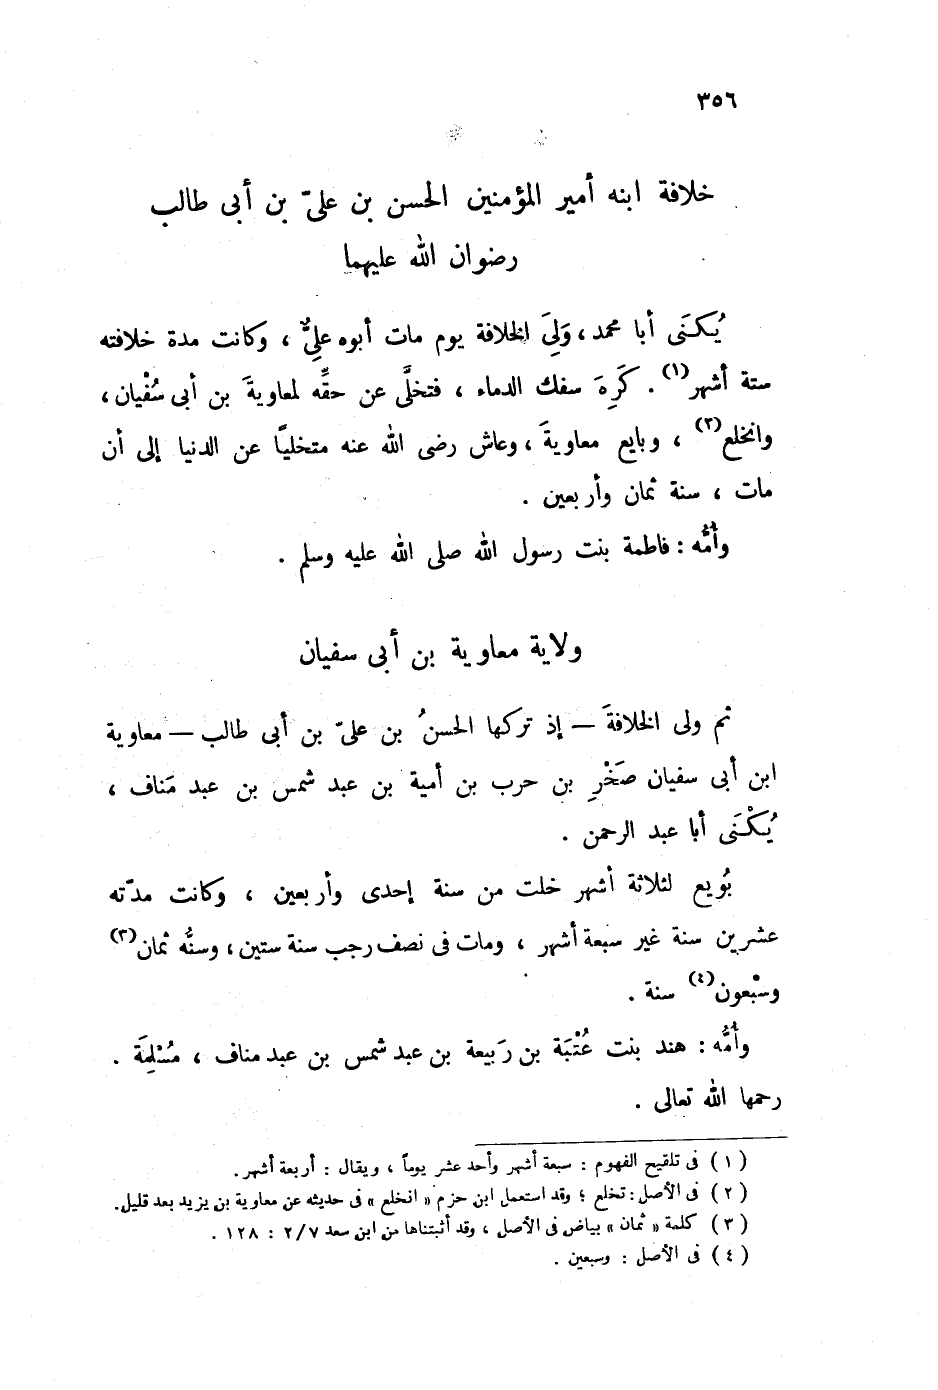 ٣٥٦
خلافة ابنه أمير المؤمنين الحسن بن علىّ بن أبى طالب
رضوان الله عليهما
يُكنَى أبا محمد، وَلِىَ الخلافة يوم مات أبوه علىٌّ ، وكانت مدة خلافته
ستة أشهر(١) . كَرِهَ سفك الدماء ، فتخلَّى عن حقِّه لمعاويةَ بن أبى سُفْيان ،
وانخلع(٢) ، وبايع معاويةَ ، وعاش رضى الله عنه متخليًا عن الدنيا إلى أن
مات ، سنة ثمان وأربعين .
وأمُّه : فاطمة بنت رسول الله صلى الله عليه وسلم .
ولاية معاوية بن أبى سفيان
ثم ولى الخلافةَ — إذ تركها الحسنُ بن علىّ بن أبى طالب — معاوية
ابن أبى سفيان صَخْرِ بن حرب بن أمية بن عبد شمس بن عبد مَناف ،
يُكْنَى أبا عبد الرحمن .
بُويع لثلاثة أشهر خلت من سنة إحدى وأربعين ، وكانت مدّته
عشرين سنة غير سبعة أشهر ، ومات فى نصف رجب سنة ستين ، وسنُّه ثمان(٣)
وسبْعون(٤) سنة .
وأُمُّه : هند بنت عُتْبَة بن رَبيعة بن عبد شمس بن عبد مناف ، مُسْلِمَة .
رحمها الله تعالى .
(١) فى تلقيح الفهوم : سبعة أشهر وأحد عشر يوماً ، ويقال : أربعة أشهر .
(٢) فى الأصل : تخلع ؛ وقد استعمل ابن حزم « انخلع » فى حديثه عن معاوية بن يزيد بعد قليل .
(٣) كلمة « ثمان » بياض فى الأصل ، وقد أثبتناها من ابن سعد ٢/٧ : ١٢٨ .
(٤) فى الأصل : وسبعين .